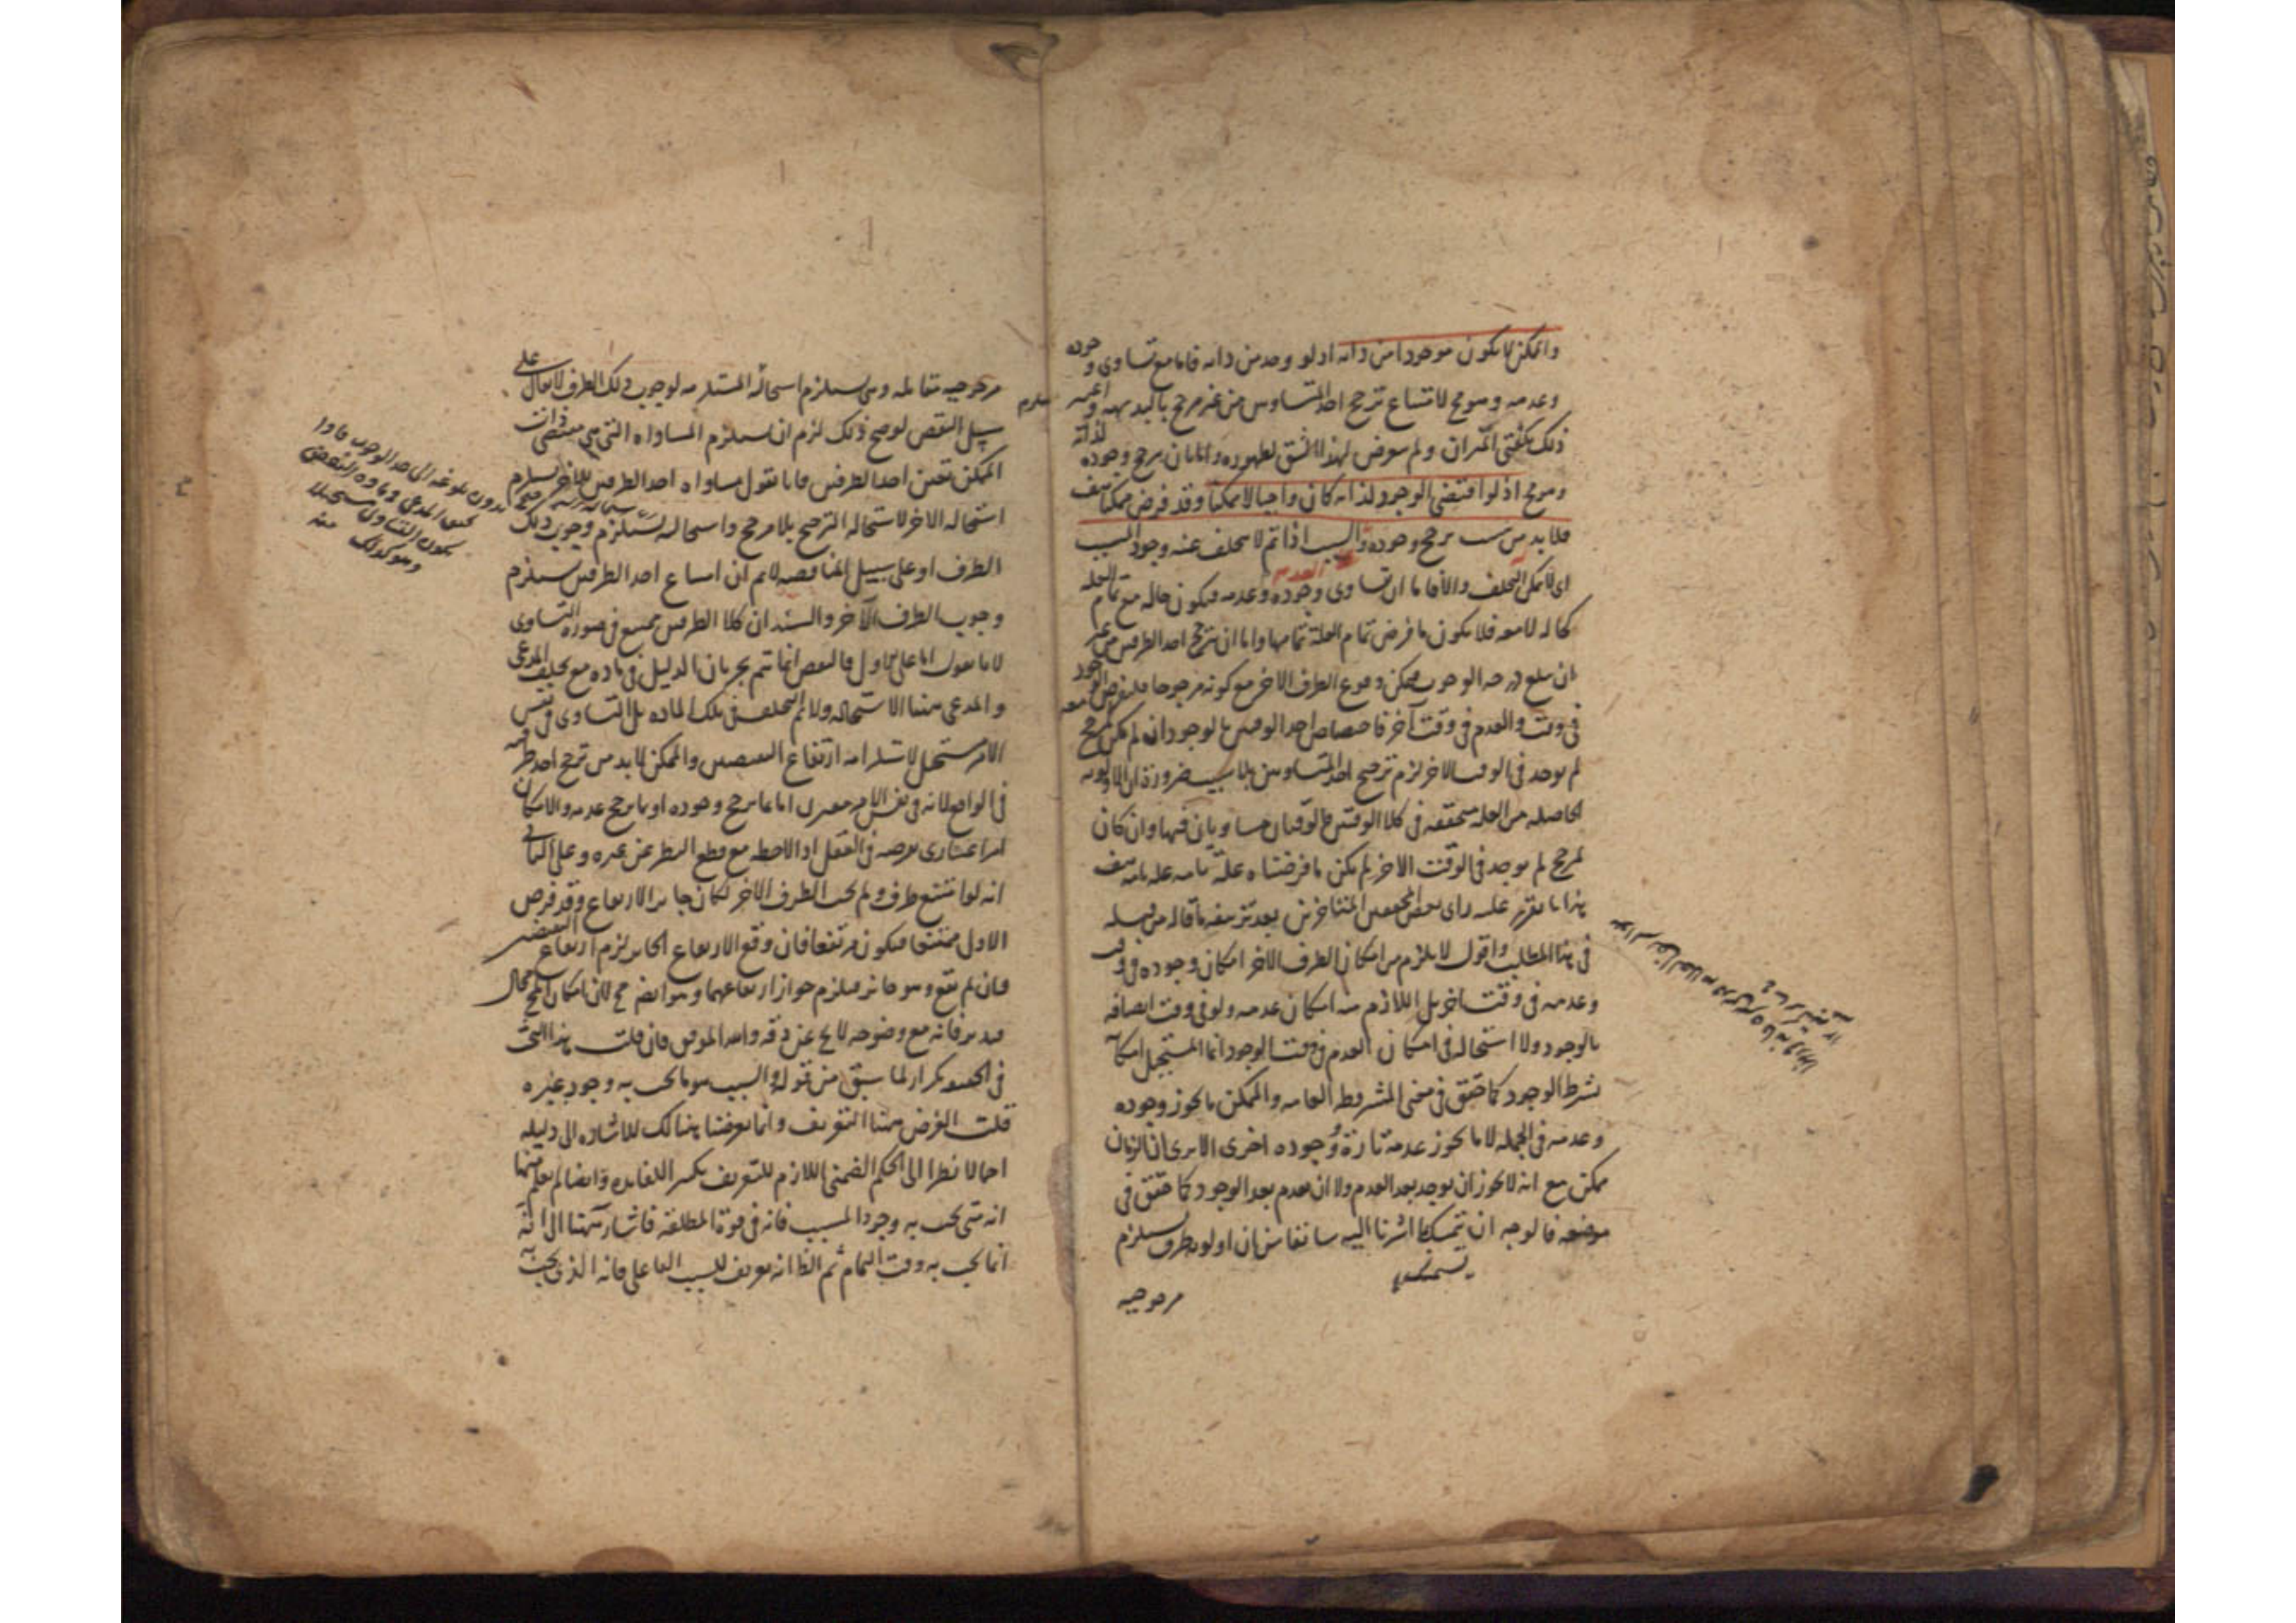 والممكن لا يكون موجودا من ذاته اذ لو وجد من ذاته فاما مع تساوى وجوده
وعدمه وهو مح لامتناع ترجح احد المتساويين من غير مرجح بالبديهة واعتبر
ذلك بكفتى الميزان ولم يتعرض لهذا الشق لظهوره واما بان يرجح وجوده لذاته
وهو مح اذ لو اقتضى الوجود لذاته كان واجبا لا ممكنا وقد فرض ممكنا هف
فلا بد من سبب يرجح وجوده والسبب اذا تم لا يتخلف عنه وجود المسبب
اى لا يمكن التخلف والا فاما ان تساوى وجوده وعدمه فيكون حاله مع تمام العلة
كحاله لا معه فلا يكون ما فرض تمام العلة تمامها واما ان يترجح احد الطرفين من غير
ان يبلغ درجه الوجوب فيمكن وقوع الطرف الاخر مع كونه مرجوحا فلنفرض الوجود معه
فى وقت والعدم فى وقت آخر فاختصاص احد الوقتين بالوجود ان لم يكن لمرجح
لم يوجد فى الوقت الاخر لزم ترجيح احد المتساويين بلا سبب ضرورة ان الاولوية
الحاصله من العله متحققه فى كلا الوقتين فالوقتان متساويان فيها وان كان
لمرجح لم يوجد فى الوقت الاخر لم يكن ما فرضناه علة تامه علة تامه هف
هذا ما تقرر عليه راى بعض المحققين المتاخرين بعد تزييفه ما قاله من قبله
فى هذا المطلب واقول لا يلزم من امكان الطرف الاخر امكان وجوده فى وقت
وعدمه فى وقت اخر بل اللازم منه امكان عدمه ولو فى وقت اتصافه
بالوجود ولا استحاله فى امكان العدم فى وقت الوجود انما المستحيل امكانه
بشرط الوجود كما حقق فى معنى المشروطه العامه والممكن ما يجوز وجوده
وعدمه فى الجمله لا ما يجوز عدمه تارة ووجوده اخرى الا يرى ان الزمان
ممكن مع انه لا يجوز ان يوجد بعد العدم ولا ان يعدم بعد الوجود كما حقق فى
موضعه فالوجه ان يتمسك بما اشرنا اليه سابقا من ان اولويه طرف يستلزم
مرجوحيه
مرجوحيه مقابله وهى يستلزم استحالته المستلزمه لوجوب ذلك الطرف لا يقال على
سبيل النقض لو صح ذلك لزم ان يستلزم المساواه التى هى مقتضى ذات
الممكن تعين احد الطرفين فانا نقول مساواه احد الطرفين للاخر يستلزم
استحاله الاخر لاستحاله الترجيح بلا مرجح واستحالته يستلزم وجوب ذلك
الطرف او على سبيل المناقضه لانم ان امتناع احد الطرفين يستلزم
وجوب الطرف الآخر والسند ان كلا الطرفين ممتنع فى صوره التساوى
لانا نقول اما على الاول فالنقض انما يتم بجريان الدليل فى ماده مع تخلف المدعى
والمدعى ههنا الاستحاله ولانم التخلف فى تلك الماده بل التساوى فى نفس
الامر مستحيل لاستلزامه ارتفاع النقيضين والممكن لا بد من ترجح احد طرفيه
فى الواقع لانه فى نفس الامر مقترن اما بما يرجح وجوده او بما يرجح عدمه والامكان
امر اعتبارى يعرضه فى العقل اذا لاحظه مع قطع النظر عن غيره وعلى الثانى
انه لو امتنع طرف ولم يجب الطرف الاخر لكان جايز الارتفاع وقد فرض
الاول ممتنعا فيكون مرتفعا فان وقع الارتفاع الجايز لزم ارتفاع النقيضين
وان لم يقع وهو جائز فيلزم جواز ارتفاعهما وهو ايضا مح لان امكان المح محال
فتدبر فانه مع وضوحه لا يخ عن دقه والله الموفق فان قلت هذا البحث
فى الحقيقه تكرار لما سبق من قوله والسبب هو ما يجب به وجود غيره
قلت الغرض ههنا التعريف وانما تعرضنا هنالك للاشاره الى دليله
اجمالا نظرا الى الحكم الضمنى اللازم للتعريف بكسر اللفايده وايضا لم يعلم منها
انه متى يجب به وجود المسبب فانه فى قوة المطلقة فاشار ههنا الى انه
انما يجب به وقت التمام ثم الظ انه تعريف للسبب الفاعلى فانه الذى يجب به
بدون بلوغه الى حد الوجوب
يكون التساوى مستحيلا
وهو كذلك منه